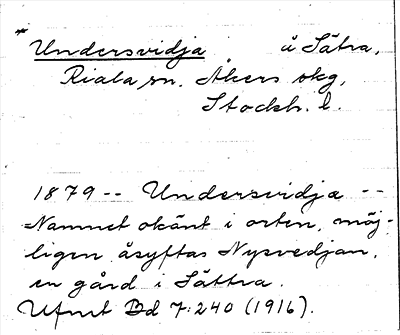 * Undersvidja å Sätra,
Riala sn. Åkers skg,
Stockh. l.
1879 -- Undersvidja --
Namnet okänt i orten, möj-
ligen åsyftas Nysvedjan,
en gård i Sättra.
Ufmt Bd 7:240 (1916).